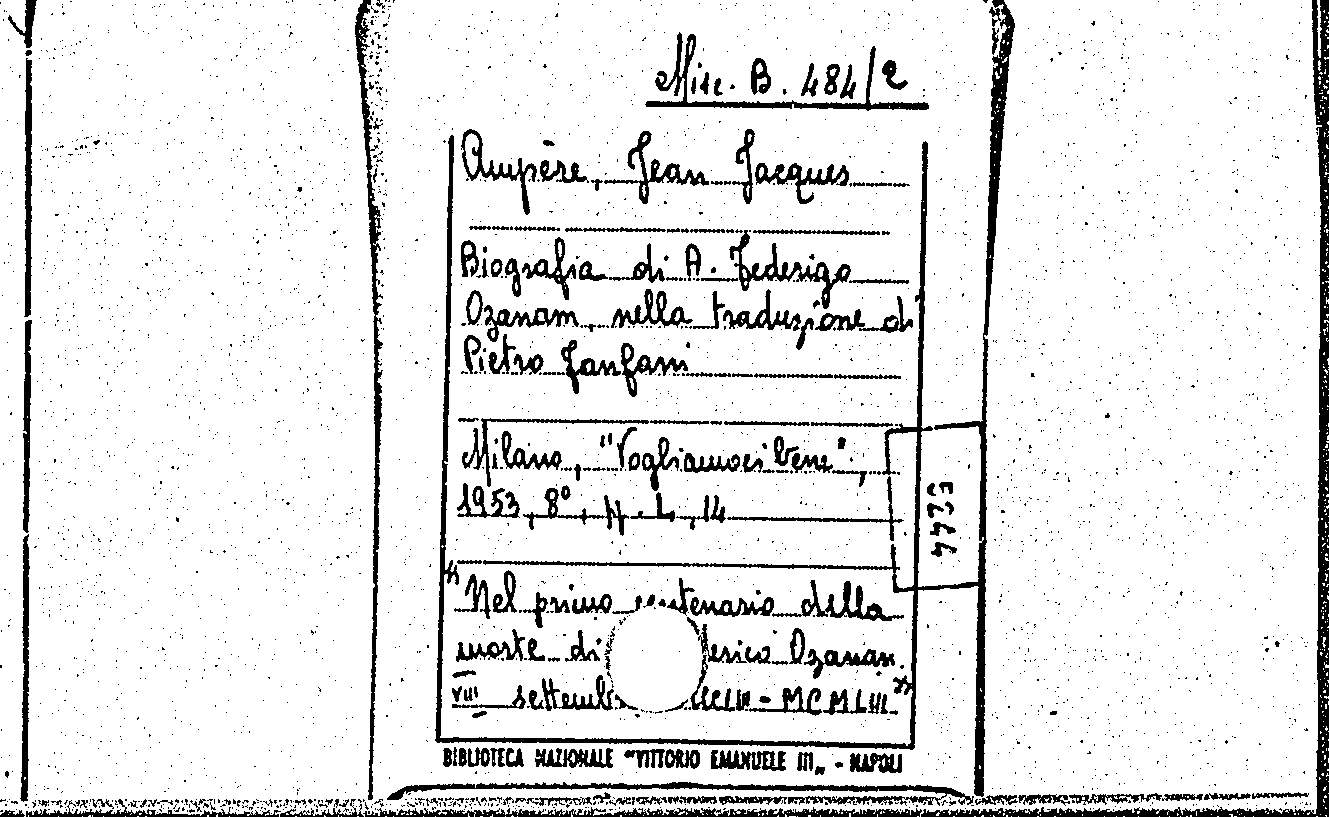 Misc. B. 484/2
Ampère, Jean Jacques
Biografia di A. Federigo
Ozanam, nella traduzione di
Pietro Fanfani
Milano, "Vogliamoci bene",
1953, 8°, pp. L, 14
"Nel primo centenario della
morte di erico Ozanam.
VIII settemb CCCLIII - MCMLIII"
BIBLIOTECA NAZIONALE "VITTORIO EMANUELE III„ - NAPOLI